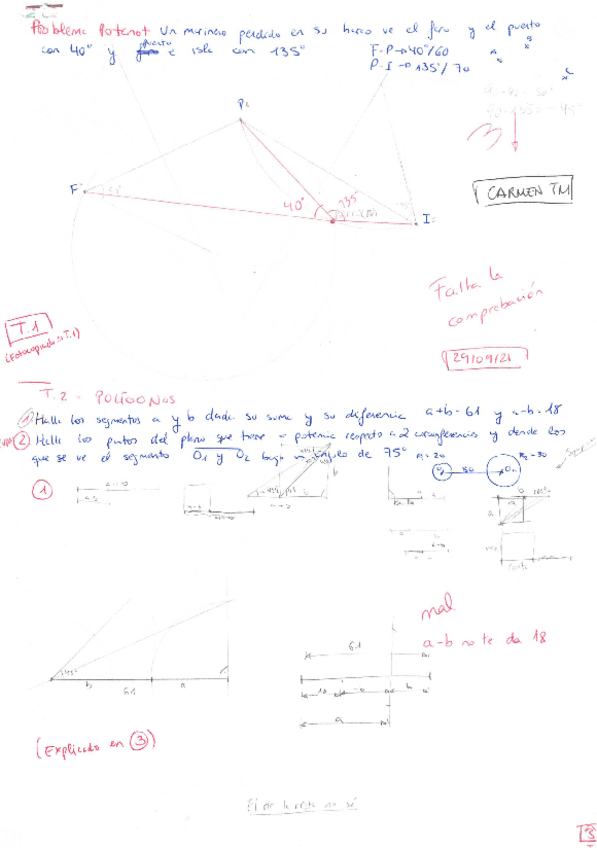 Problema Potenot Un marinero perdido en su barco ve el faro y el puerto
con 40° y puerto e isla con 135°
F-P→40°/60
P-I→135°/70
CARMEN TM
P
F
I
40°
135°
Falta la
comprobación
29/09/21
T.1
T.2 - POLÍGONOS
1 Halla los segmentos a y b dada su suma y su diferencia a+b=61 y a-b=18
2 Halla los puntos del plano que tiene = potencia respecto a 2 circunferencias y desde los
que se ve el segmento O1 y O2 bajo un ángulo de 75° R1=20 R2=30
80
1
45°
b
61
a
61
18
b
a
mal
a-b no te da 18
(Explicado en 3)
El de la resta no sé
3